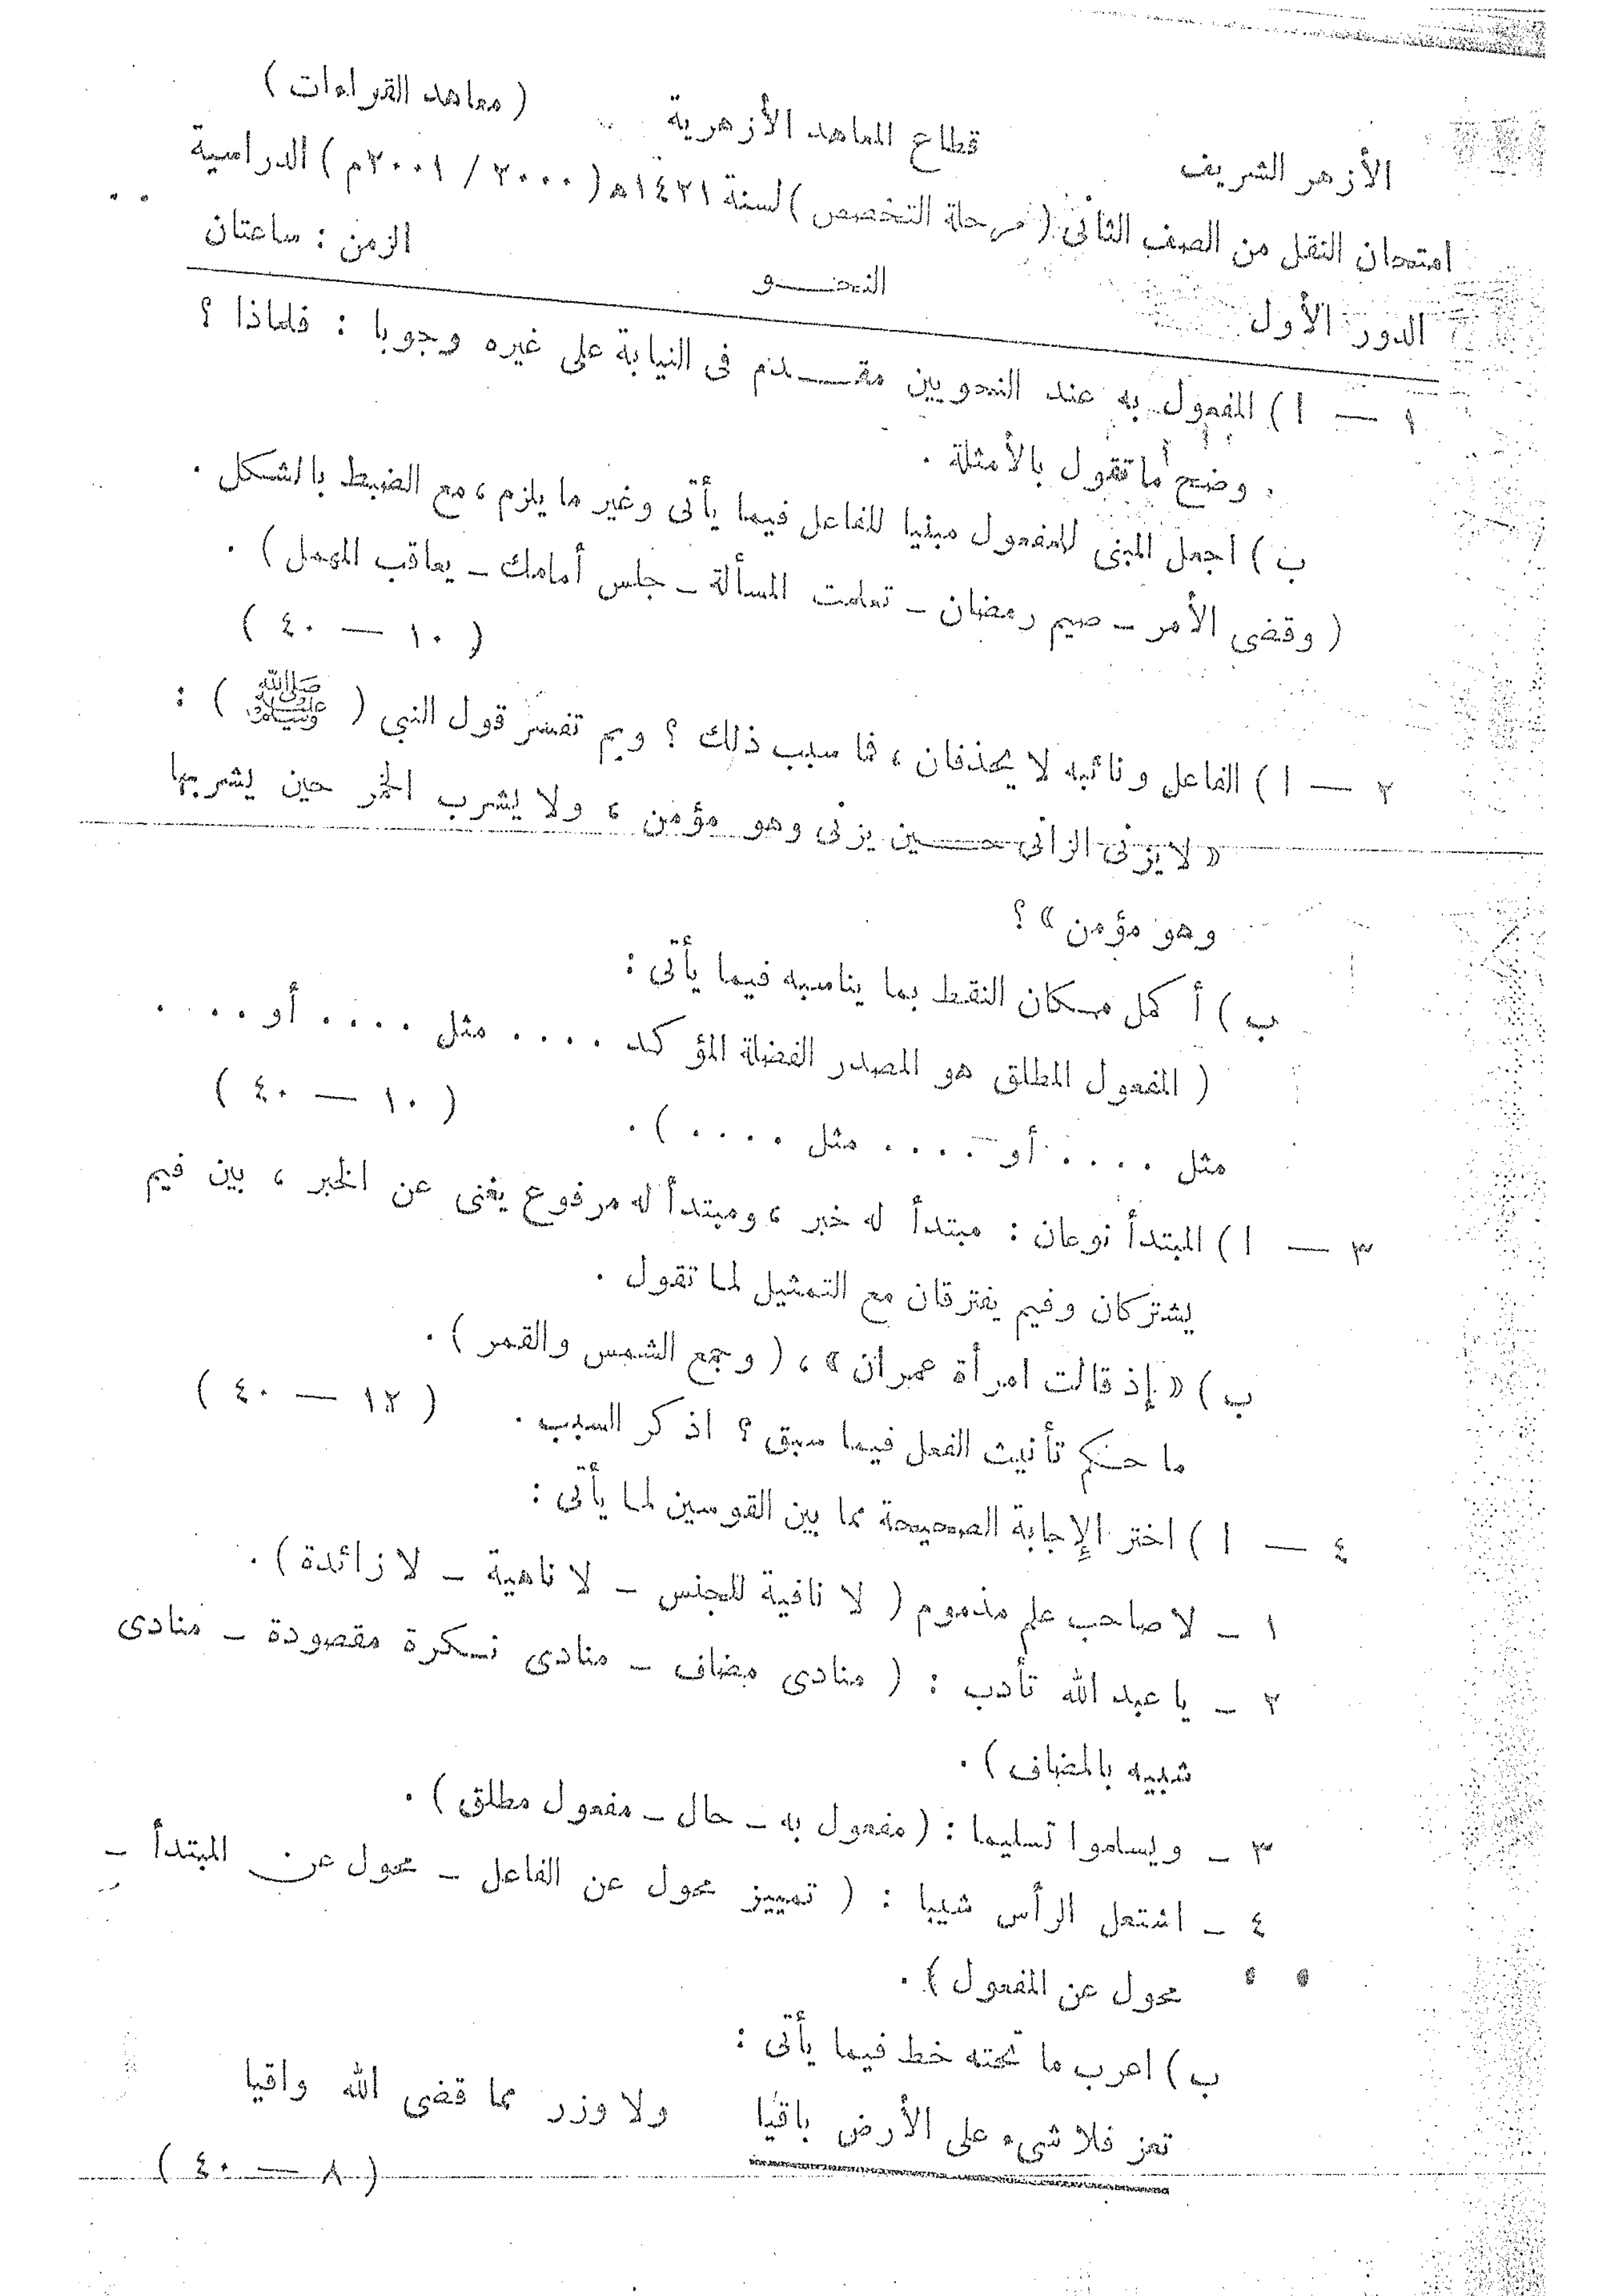 الأزهر الشريف قطاع المعاهد الأزهرية ( معاهد القراءات )
امتحان النقل من الصف الثانى ( مرحلة التخصص ) لسنة ١٤٢١هـ ( ٢٠٠٠ / ٢٠٠١م ) الدراسية
الدور الأول النحـــــو الزمن : ساعتان
١ — ا ) المفعول به عند النحويين مقـــدم فى النيابة على غيره وجوبا : فلماذا ؟
وضح ما تقول بالأمثلة .
ب ) اجعل المبنى للمفعول مبنيا للفاعل فيما يأتى وغير ما يلزم ، مع الضبط بالشكل .
( وقضى الأمر – صيم رمضان – تعلمت المسألة – جلس أمامك – يعاقب المهمل ) .
( ١٠ — ٤٠ )
٢ — ا ) الفاعل ونائبه لا يحذفان ، فما سبب ذلك ؟ وبم تفسر قول النبي ( ﷺ ) :
« لا يزنى الزانى حـــين يزنى وهو مؤمن ، ولا يشرب الخمر حين يشربها
وهو مؤمن » ؟
ب ) أكمل مكان النقط بما يناسبه فيما يأتى :
( المفعول المطلق هو المصدر الفضلة المؤكد .... مثل .... أو ....
مثل .... أو .... مثل .... ) . ( ١٠ — ٤٠ )
٣ — ا ) المبتدأ نوعان : مبتدأ له خبر ، ومبتدأ له مرفوع يغنى عن الخبر ، بين فيم
يشتركان وفيم يفترقان مع التمثيل لما تقول .
ب ) « إذ قالت امرأة عمران » ، ( وجمع الشمس والقمر ) .
ما حكم تأنيث الفعل فيما سبق ؟ اذكر السبب . ( ١٢ — ٤٠ )
٤ — ا ) اختر الإجابة الصحيحة مما بين القوسين لما يأتى :
١ – لا صاحب علم مذموم ( لا نافية للجنس – لا ناهية – لا زائدة ) .
٢ – يا عبد الله تأدب : ( منادى مضاف – منادى نكرة مقصودة – منادى
شبيه بالمضاف ) .
٣ – ويسلموا تسليما : ( مفعول به – حال – مفعول مطلق ) .
٤ – اشتعل الرأس شيبا : ( تمييز محول عن الفاعل – محول عن المبتدأ –
محول عن المفعول ) .
ب ) اعرب ما تحته خط فيما يأتى :
تعز فلا شىء على الأرض باقيا ولا وزر مما قضى الله واقيا
( ٨ — ٤٠ )